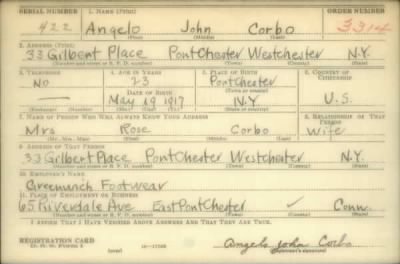 SERIAL NUMBER 1. NAME (Print) ORDER NUMBER
422 Angelo John Corbo 3314
(First) (Middle) (Last)
2. ADDRESS (Print)
33 Gilbert Place PortChester Westchester N.Y.
(Number and street or R. F. D. number) (Town) (County) (State)
3. TELEPHONE 4. AGE IN YEARS 5. PLACE OF BIRTH 6. COUNTRY OF CITIZENSHIP
No 23 Portchester
DATE OF BIRTH (Town or county)
May 19 1917 N.Y. U.S.
(Exchange) (Number) (Mo.) (Day) (Yr.) (State or country)
7. NAME OF PERSON WHO WILL ALWAYS KNOW YOUR ADDRESS 8. RELATIONSHIP OF THAT PERSON
Mrs Rose Corbo Wife
(Mr., Mrs., Miss) (First) (Middle) (Last)
9. ADDRESS OF THAT PERSON
33 Gilbert Place PortChester Westchester N.Y.
(Number and street or R. F. D. number) (Town) (County) (State)
10. EMPLOYER'S NAME
Greenwich Footwear
11. PLACE OF EMPLOYMENT OR BUSINESS
65 Riverdale Ave East PortChester ✓ Conn.
(Number and street or R. F. D. number) (Town) (County) (State)
I AFFIRM THAT I HAVE VERIFIED ABOVE ANSWERS AND THAT THEY ARE TRUE.
REGISTRATION CARD
D. S. S. Form 1 (over) 16-17105 Angelo John Corbo
(Registrant's signature)